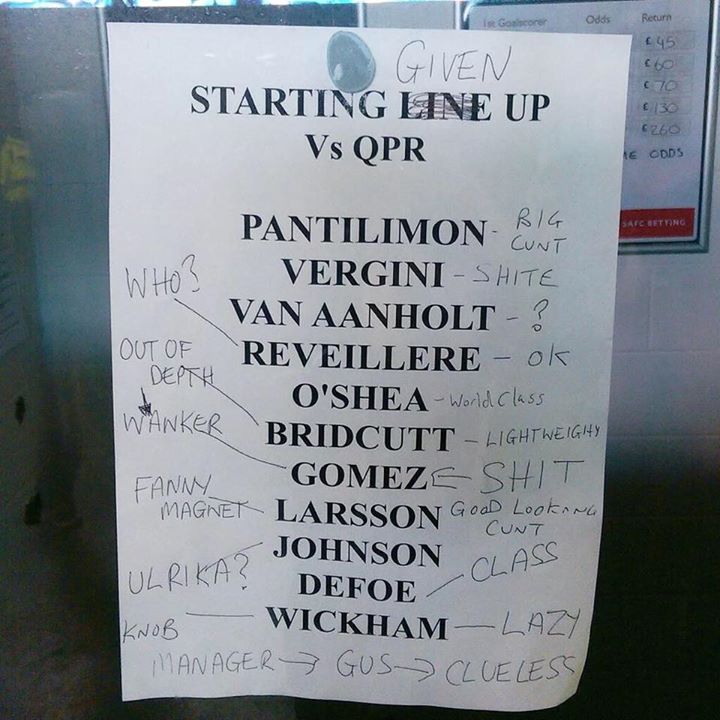 1st Goalscorer Odds Return
£45
£60
£70
£130
£260
ODDS
SAFC BETTING
GIVEN
STARTING LINE UP
Vs QPR
PANTILIMON - BIG CUNT
VERGINI - SHITE
WHO?
VAN AANHOLT - ?
REVEILLERE - OK
OUT OF DEPTH
O'SHEA - World Class
WANKER
BRIDCUTT - LIGHTWEIGHT
GOMEZ SHIT
FANNY MAGNET
LARSSON GOOD LOOKING CUNT
JOHNSON
ULRIKA?
DEFOE CLASS
KNOB WICKHAM - LAZY
MANAGER → GUS → CLUELESS